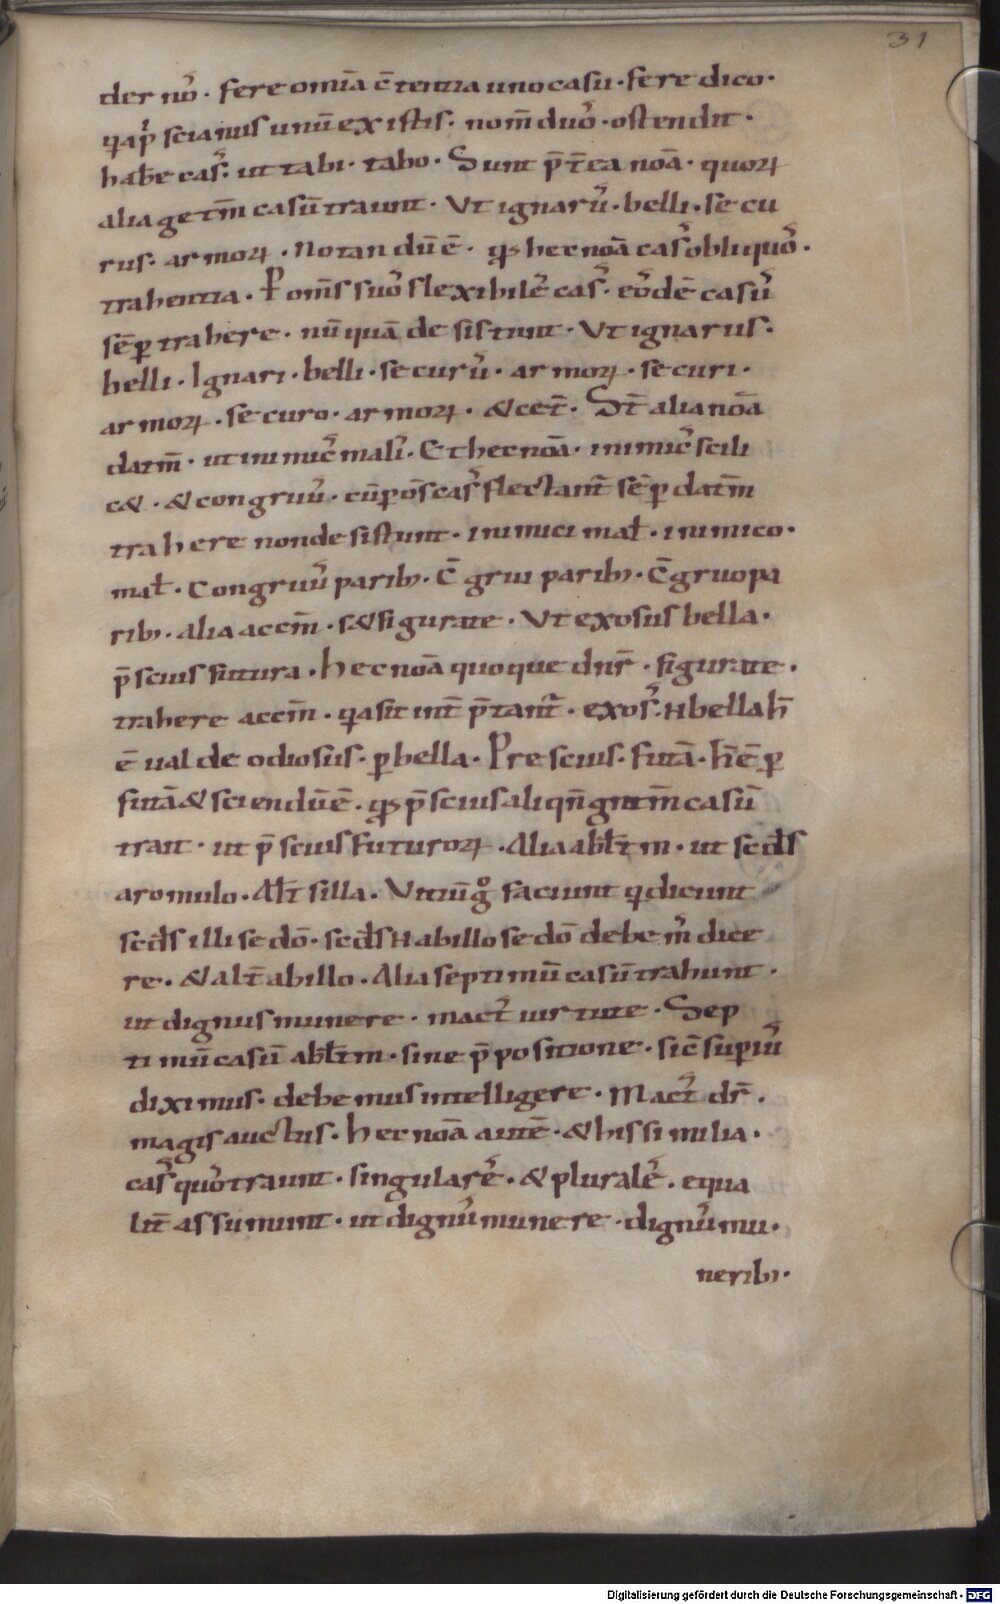 31
der nō. fere omīa c̄tentia uno casu. fere dico.
q̄ap̄ scianius unū ex istis. nom̄ duō. ostendit.
hab̄e cas̄. ut tabi. tabo. Sunt p̄t̄ea noā. quoꝝ
alia getm̄ casū traunt. Ut ignarū. belli. secu
rus. armoꝝ. Notandū ē. qđ hec noā cas̄ obliquō.
trahentia. P̄ om̄s suō flexibilē cas̄. eōdē casū
sēp̄ trahere. nūquā desistunt. Ut ignarus.
belli. Ignari. belli. securū. armoꝝ. securi.
armoꝝ. securo. armoꝝ. & cet̄. St̄ alia noā
datm̄. ut inimic̄ mali. Et hec noā. inimic̄ scili
c&. & congruū. cū p̄ ōs cas̄ flectant̄ sēp̄ datm̄
trahere non desistunt. inimici mal̄. inimico.
mal̄. Congruū parib;. C̄grui parib;. C̄gruo pa
rib;. alia accm̄. s& figurate. Ut exosus bella.
p̄scius futura. hec noā quoque dnr̄. figurate.
trahere accm̄. q̄asi t int̄p̄tant̄. exos̄. H bella h̄
ē ualde odiosus. ꝑ bella. Prescius. futā. h̄ ē ꝑ
futā & sciendū ē. qđ p̄scius aliqn̄ gntm̄ casū
trait. ut p̄scius futuroꝝ. Alia abl̄tm. ut scds̄
a romulo. Al̄t silla. Uitiū g° faciunt q̄ dicunt
scds̄ illi sedō. scds̄ H ab illo sedō debem̄ dice
re. & alt̄ ab illo. Alia septimū casū trahunt.
ut dignus munere. mact̄ uirtute. Sep
timū casū abl̄tm. sine p̄positione. sic̄ supiū
diximus. debemus intelligere. Mact̄ dr̄.
magis auctus. hec noā autē. & his similia.
cas̄ quō traunt. singularē. & pluralē. equa
lit̄ assumunt. ut dignū munere. dignū mu.
nerib;.
Digitalisierung gefördert durch die Deutsche Forschungsgemeinschaft - DFG